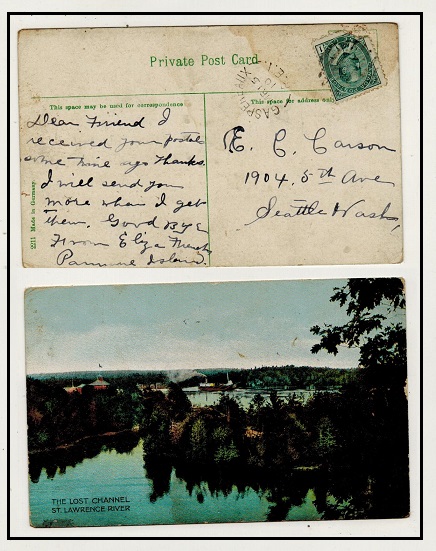 Private Post Card
This space may be used for correspondence
This space for address only
Dear Friend I
received your postal
some time ago thanks.
I will send you
more when I get
them. Good Bye
From Eliza
Island.
E. C. Carson
1904. 5th Ave
Seattle Wash,
2211 Made in Germany
GASPEREAUX
THE LOST CHANNEL
ST. LAWRENCE RIVER